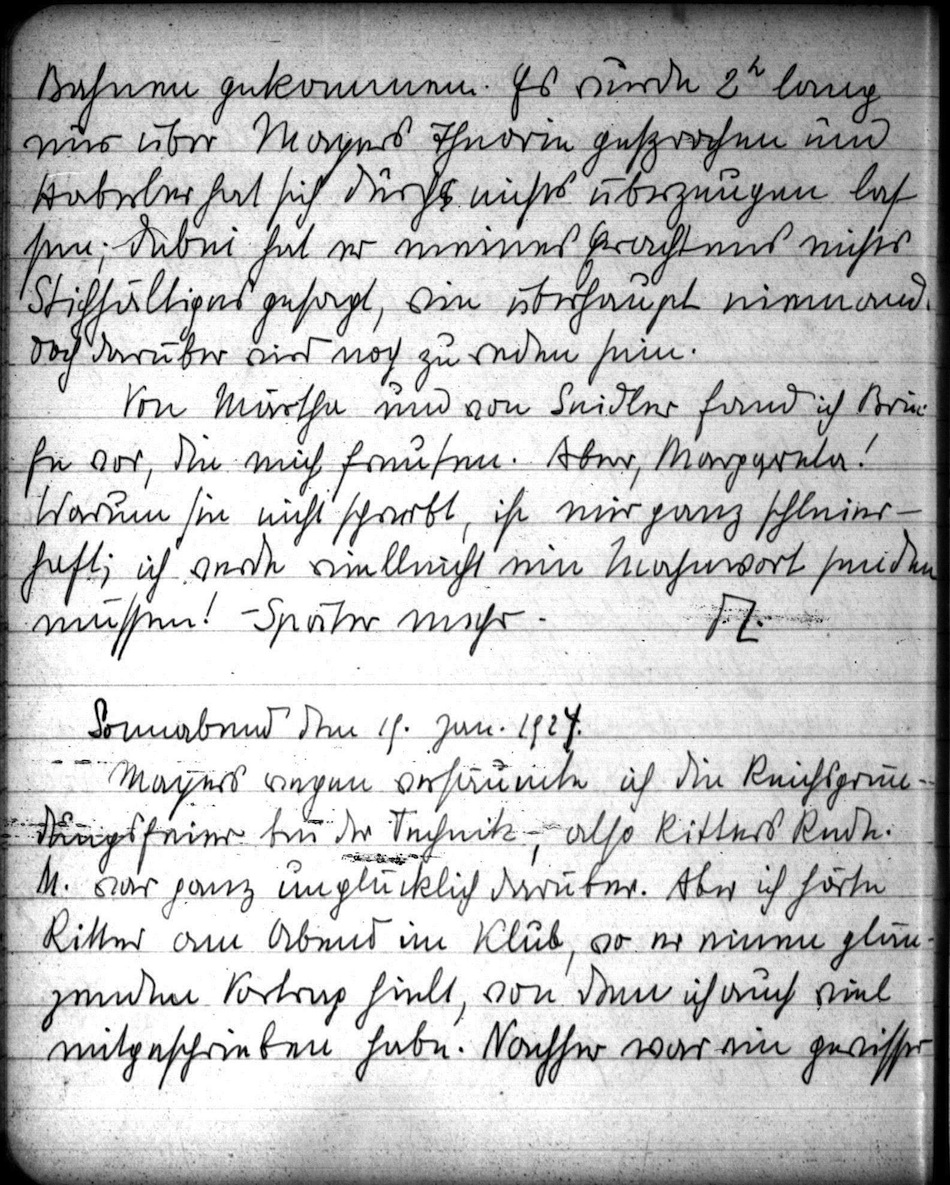 Bahnen gekommen. Es wurde 2h lang
nur über Mayers Theorie gesprochen und
Haberler hat sich durch nichts überzeugen las-
sen; dabei hat er meines Erachtens nichts
Stichhältiges gesagt, wie überhaupt niemand.
Doch darüber wird noch zu reden sein.
Von Martha und von Seidler fand ich Brie-
fe vor, die mich freuten. Aber, Margareta!
Warum sie nicht schreibt, ist mir ganz schleier-
haft; ich werde vielleicht ein Mahnwort senden
müssen! - Später mehr.
Sonnabend den 19. Jan. 1924.
Mayers wegen versäumte ich die Reichsgrün-
dungsfeier bei der Technik -, also Ritters Rede.
M. war ganz unglücklich darüber. Aber ich hörte
Ritter am Abend im Klub, wo er einen glän-
zenden Vortrag hielt, von dem ich auch viel
mitgeschrieben habe. Nachher war ein gewisser